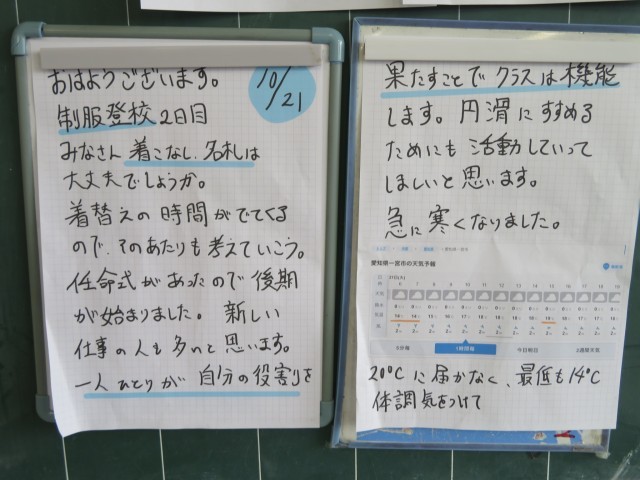 おはようございます。
10/21
制服登校2日目
みなさん 着こなし、名札は
大丈夫でしょうか。
着替えの時間がでてくる
ので、そのあたりも考えていこう。
任命式があったので後期
が始まりました。 新しい
仕事の人も多いと思います。
一人ひとりが 自分の役割りを
果たすことで クラスは機能
します。円滑にすすめる
ためにも 活動していって
ほしいと思います。
急に寒くなりました。
愛知県一宮市の天気予報
1時間毎
今日明日
2週間天気
20℃に届かなく、最低も14℃
体調気をつけて